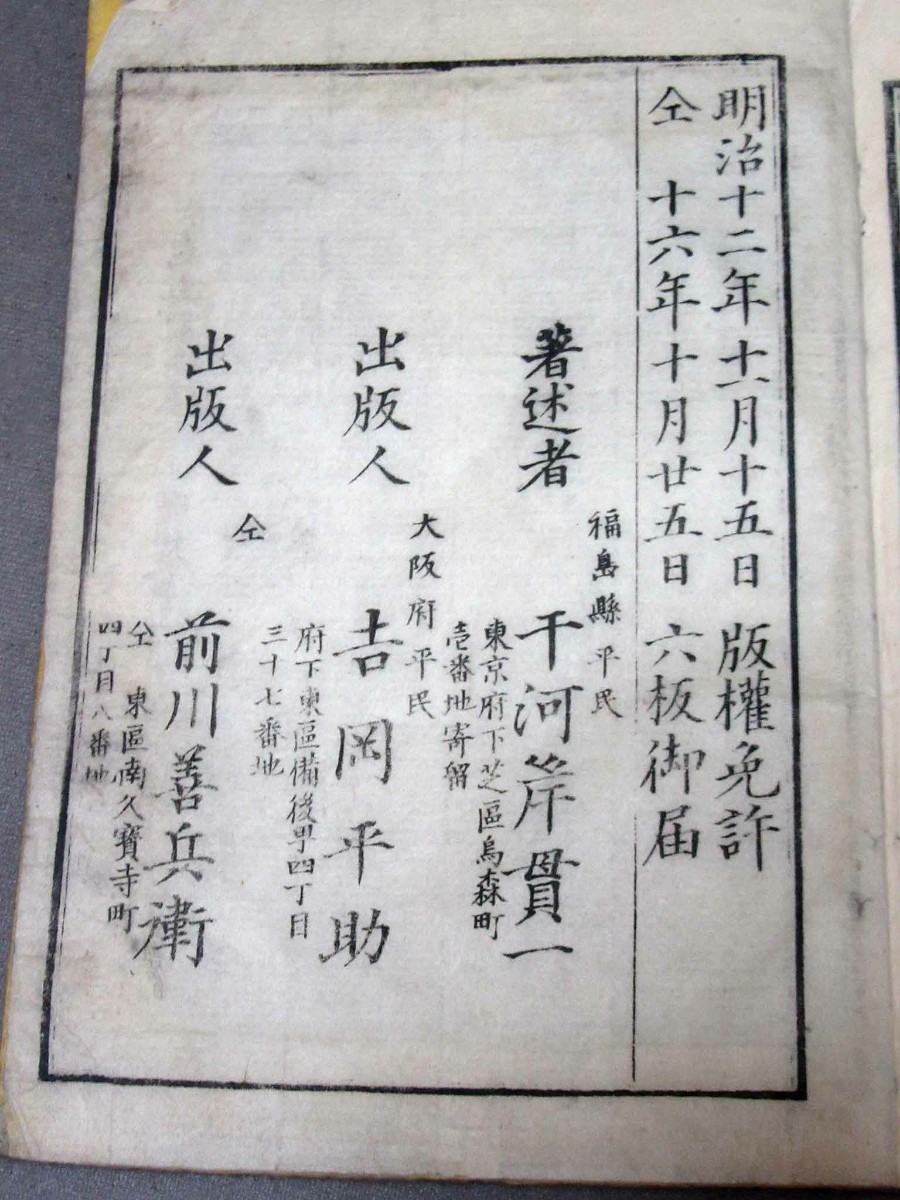 明治十二年十一月十五日 版權免許
仝 十六年十月廿五日 六板御届
福島縣平民
著述者 干河岸貫一
東京府下芝區烏森町
壱番地寄留
大阪府平民
出版人 吉岡平助
府下東區備後町四丁目
三十七番地
仝
出版人 前川善兵衛
仝 東區南久寶寺町
四丁目八番地